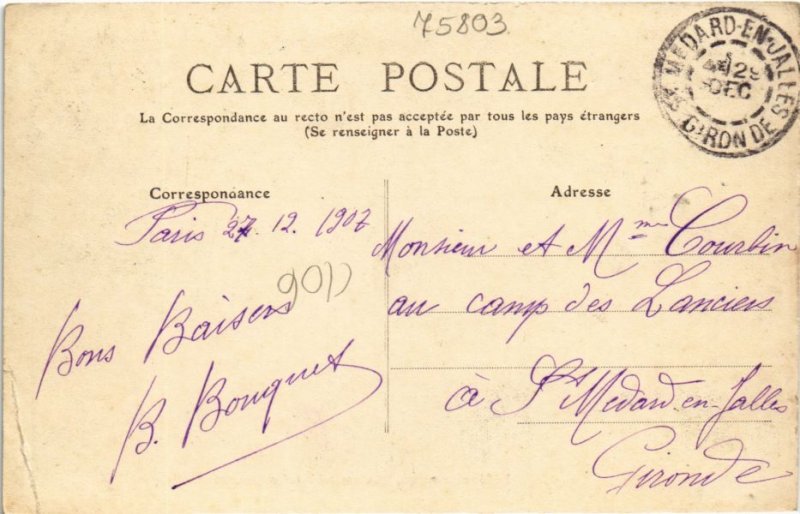 75803
CARTE POSTALE
La Correspondance au recto n'est pas acceptée par tous les pays étrangers
(Se renseigner à la Poste)
ST MEDARD-EN-JALLES
29
DEC
GIRONDE
Correspondance
Paris 27.12.1907
Bons Baisers
B. Bouquet
Adresse
Monsieur et Mme Courbin
au camp des Lanciers
à St Medard-en-Jalles
Gironde